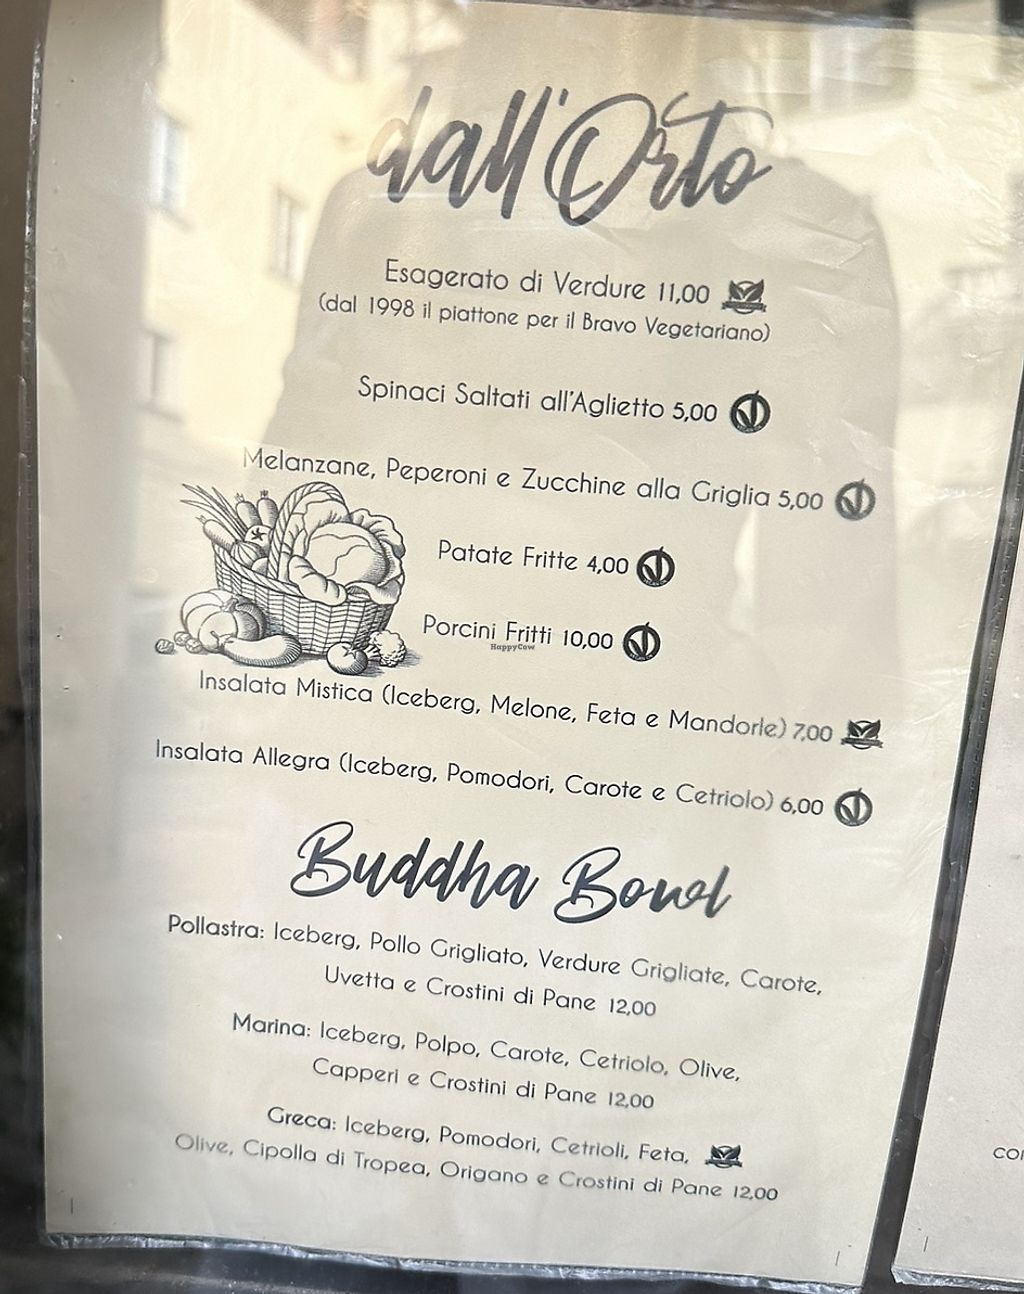 dall'Orto
Esagerato di Verdure 11,00
(dal 1998 il piattone per il Bravo Vegetariano)
Spinaci Saltati all'Aglietto 5,00
Melanzane, Peperoni e Zucchine alla Griglia 5,00
Patate Fritte 4,00
Porcini Fritti 10,00
HappyCow
Insalata Mistica (Iceberg, Melone, Feta e Mandorle) 7,00
Insalata Allegra (Iceberg, Pomodori, Carote e Cetriolo) 6,00
Buddha Bowl
Pollastra: Iceberg, Pollo Grigliato, Verdure Grigliate, Carote,
Uvetta e Crostini di Pane 12,00
Marina: Iceberg, Polpo, Carote, Cetriolo, Olive,
Capperi e Crostini di Pane 12,00
Greca: Iceberg, Pomodori, Cetrioli, Feta,
Olive, Cipolla di Tropea, Origano e Crostini di Pane 12,00